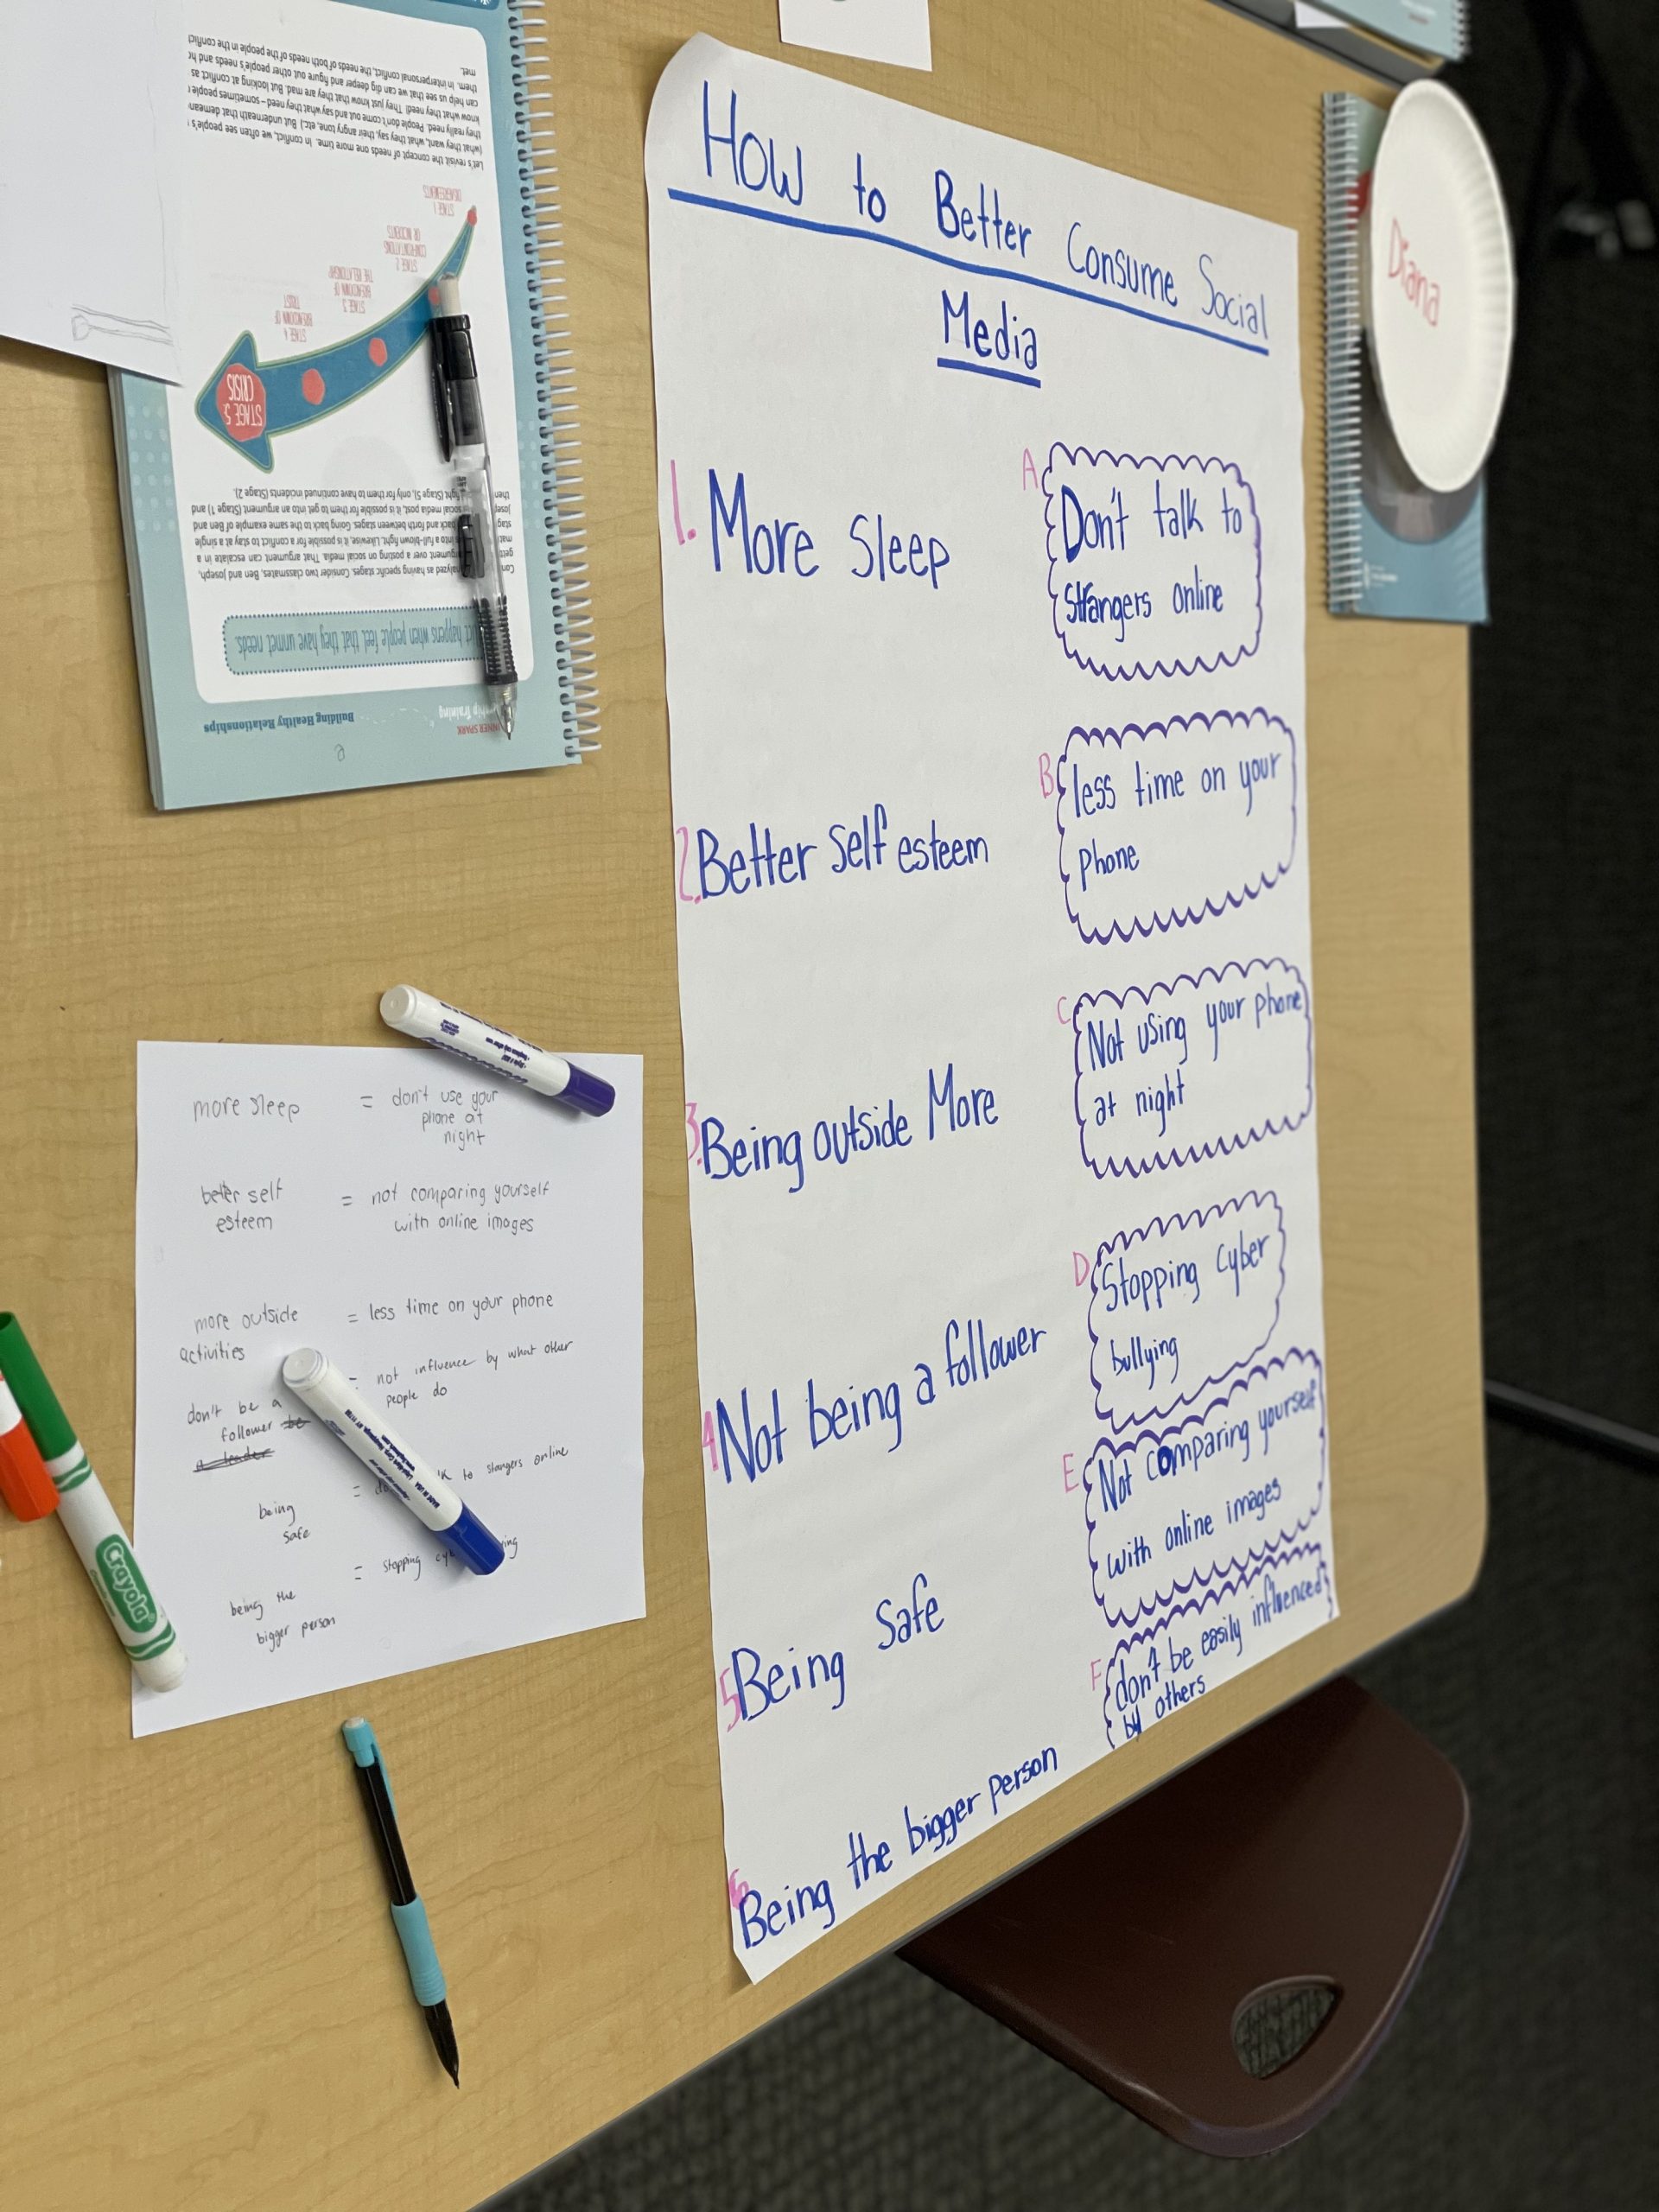 How to Better Consume Social
Media
1. More Sleep
2. Better self esteem
3. Being outside More
4 Not being a follower
5 Being Safe
6 Being the bigger person
A
Don't talk to
strangers online
B
less time on your
phone
C
Not using your phone
at night
D
Stopping cyber
bullying
E
Not comparing yourself
with online images
F
don't be easily influenced
by others
more sleep = don't use your
phone at
night
better self
esteem
= not comparing yourself
with online images
more outside
activities
= less time on your phone
don't be a
follower be
a leader
= not influence by what other
people do
being
safe
= to stangers online
being the
bigger person
= stopping
Crayola
Diana
INNER SPARK
Training
Building Healthy Relationships
happens when people feel that they have unmet needs.
analyzed as having specific stages. Consider two classmates, Ben and Joseph,
argument over a posting on social media. That argument can escalate in a
into a full-blown fight. Likewise, it is possible for a conflict to stay at a single
back and forth between stages. Going back to the same example of Ben and
social media post, it is possible for them to get into an argument (Stage 1) and
then fight (Stage 5), only for them to have continued incidents (Stage 2).
STAGE 5:
CRISIS
STAGE 4
BREAKDOWN OF
TRUST
STAGE 3
BREAKDOWN OF
THE RELATIONSHIP
STAGE 2
CONFRONTATIONS
OR INCIDENTS
STAGE 1
DISAGREEMENTS
Let's revisit the concept of needs one more time. In conflict, we often see people's
(what they want, what they say, their angry tone, etc.) But underneath that
they really need. People don't come out and say what they need – sometimes people
know what they need! They just know that they are mad. But looking at conflict as
can help us see that we can dig deeper and figure out other people's needs and
them. In interpersonal conflict, the needs of both needs of the people in the conflict
met.